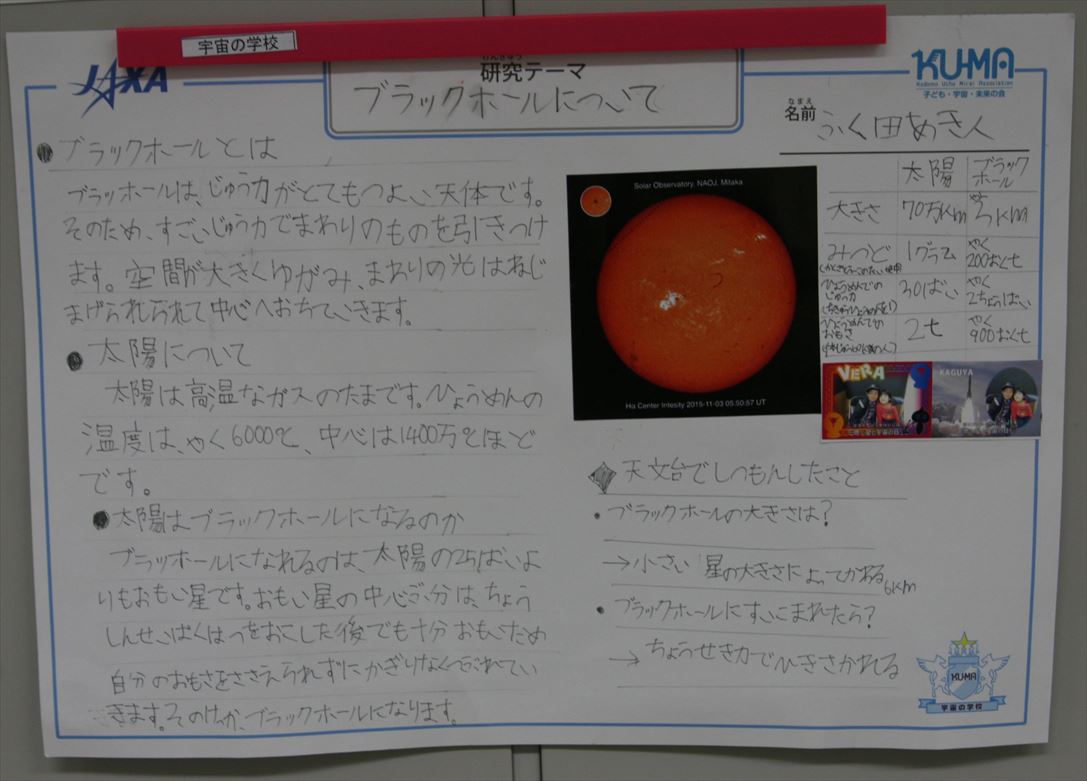 宇宙の学校
JAXA
けんきゅう
研究テーマ
ブラックホールについて
KU-MA
Kodomo Uchu Mirai Association
子ども・宇宙・未来の会
なまえ
名前
ふく田あきと
●ブラックホールとは
ブラッホールは、じゅう力がとてもつよい天体です。
そのため、すごいじゅう力でまわりのものを引きつけ
ます。空間が大きくゆがみ、まわりの光はねじ
まげられられて中心へおちていきます。
●太陽について
太陽は高温なガスのたまです。ひょうめんの
温度は、やく6000℃、中心は1400万℃ほど
です。
●太陽はブラックホールになるのか
ブラッホールになれるのは、太陽の25ばいよ
りもおもい星です。おもい星の中心ぶ分は、ちょう
しんせいばくはつをおこした後でも十分おもいため
自分のおもさをささえられずにかぎりなくつぶれてい
きます。そのけっか、ブラックホールになります。
Solar Observatory, NAOJ, Mitaka
Hα Center Intesity 2015-11-03 05:50:57 UT
太陽 ブラックホール
大きさ 70万km やく3km
みつど 1グラム やく200おくt
ひょうめんでのじゅう力 30ばい やく2ちょうばい
ひょうめんでのおもさ 2t やく900おくt
VERA
KAGUYA
◆天文台でしつもんしたこと
・ブラックホールの大きさは?
→小さい 星の大きさによってかわる 6km
・ブラックホールにすいこまれたら?
→ちょうせき力でひきさかれる
KU-MA
宇宙の学校